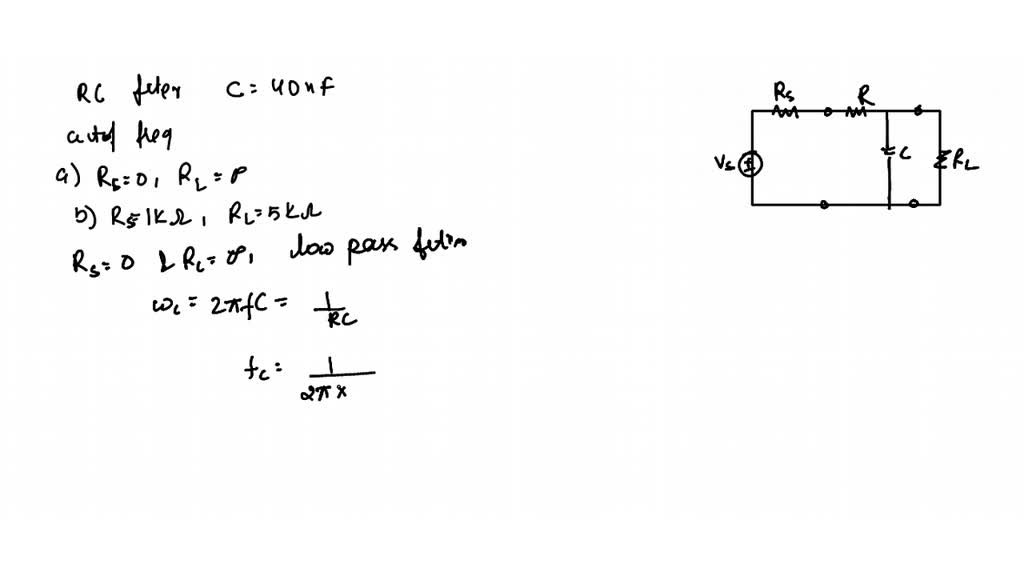 RC filter C = 40nF
cutof freq
a) Rs=0, RL=∞
b) Rs=1KΩ, RL=5KΩ
Rs=0 & RL=∞, low pass filter
ωc = 2πfC = 1/RC
fc = 1/2π×
Rs R
Vs C RL